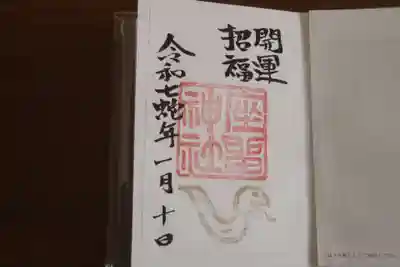 開運
招福
座間
神社
令和七蛇年一月十日